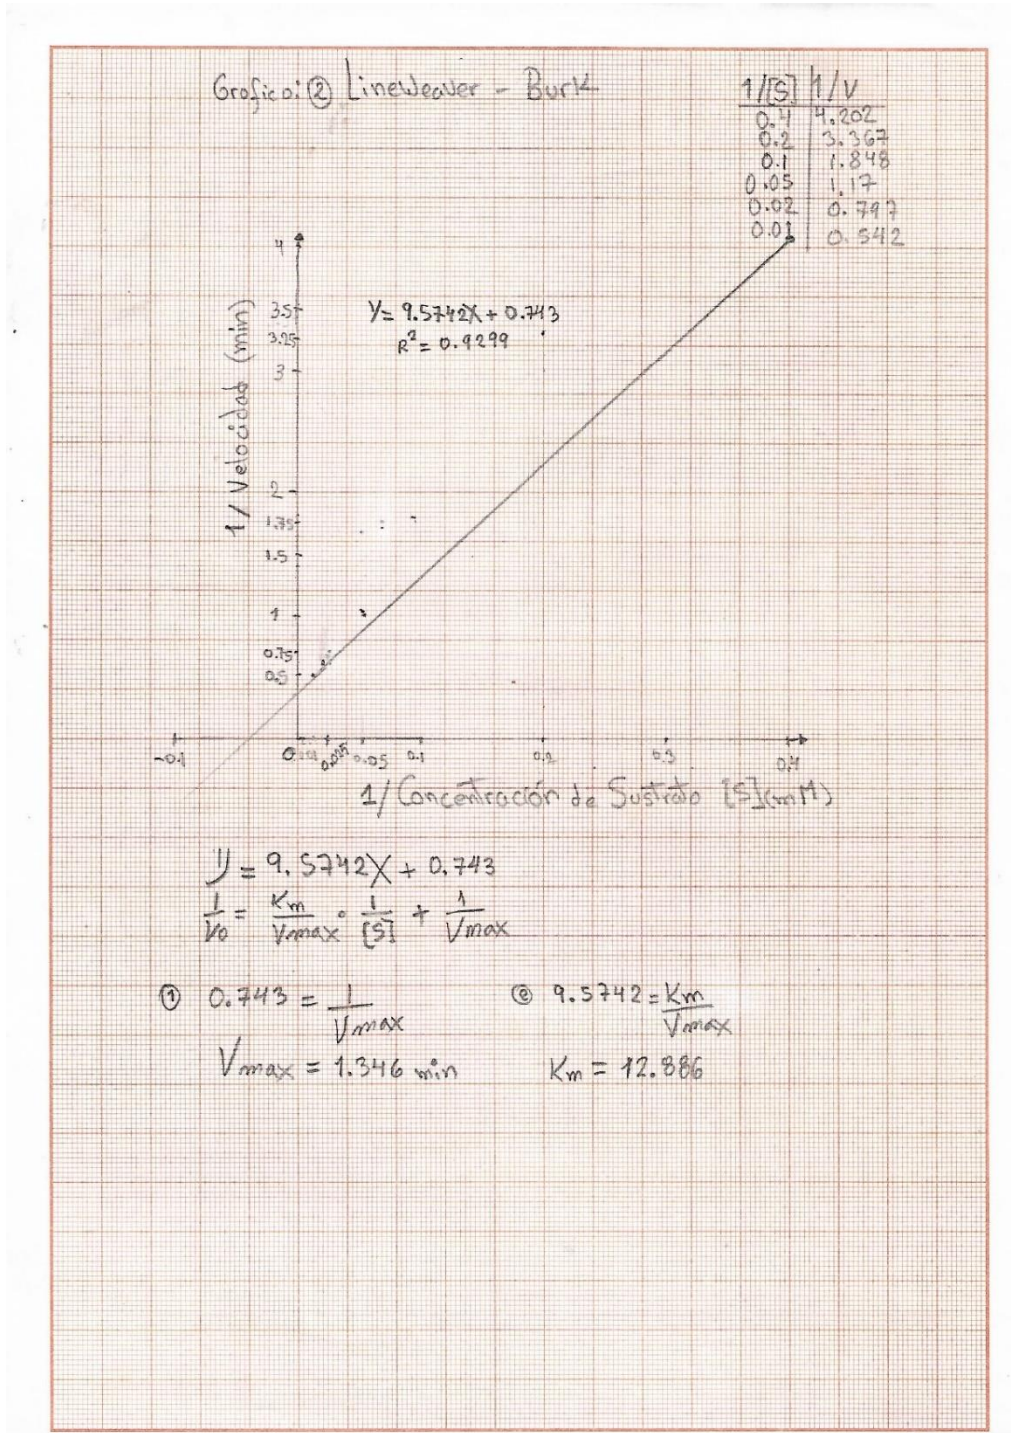 Grafico: ② LineWeaver - Burk
1/[S] 1/V
0.4 4.202
0.2 3.367
0.1 1.848
0.05 1.17
0.02 0.797
0.01 0.542
4
3.5
3.25
3
2
1.75
1.5
1
0.75
0.5
1/Velocidad (min)
Y= 9.5742X + 0.743
R²= 0.9299
-0.1 0 0.01 0.025 0.05 0.1 0.2 0.3 0.4
1/Concentración de Sustrato [S](mM)
y = 9.5742X + 0.743
1/Vo = Km/Vmax · 1/[S] + 1/Vmax
① 0.743 = 1/Vmax
Vmax = 1.346 min
② 9.5742 = Km/Vmax
Km = 12.886